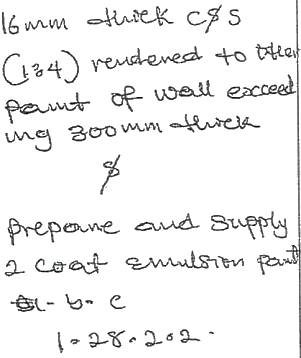 16mm thick C&S
(1:3:4) rendered to other
paint of wall exceed
ing 300mm thick
&
prepare and supply
2 coat emulsion paint
a.b.c
1.28.202.